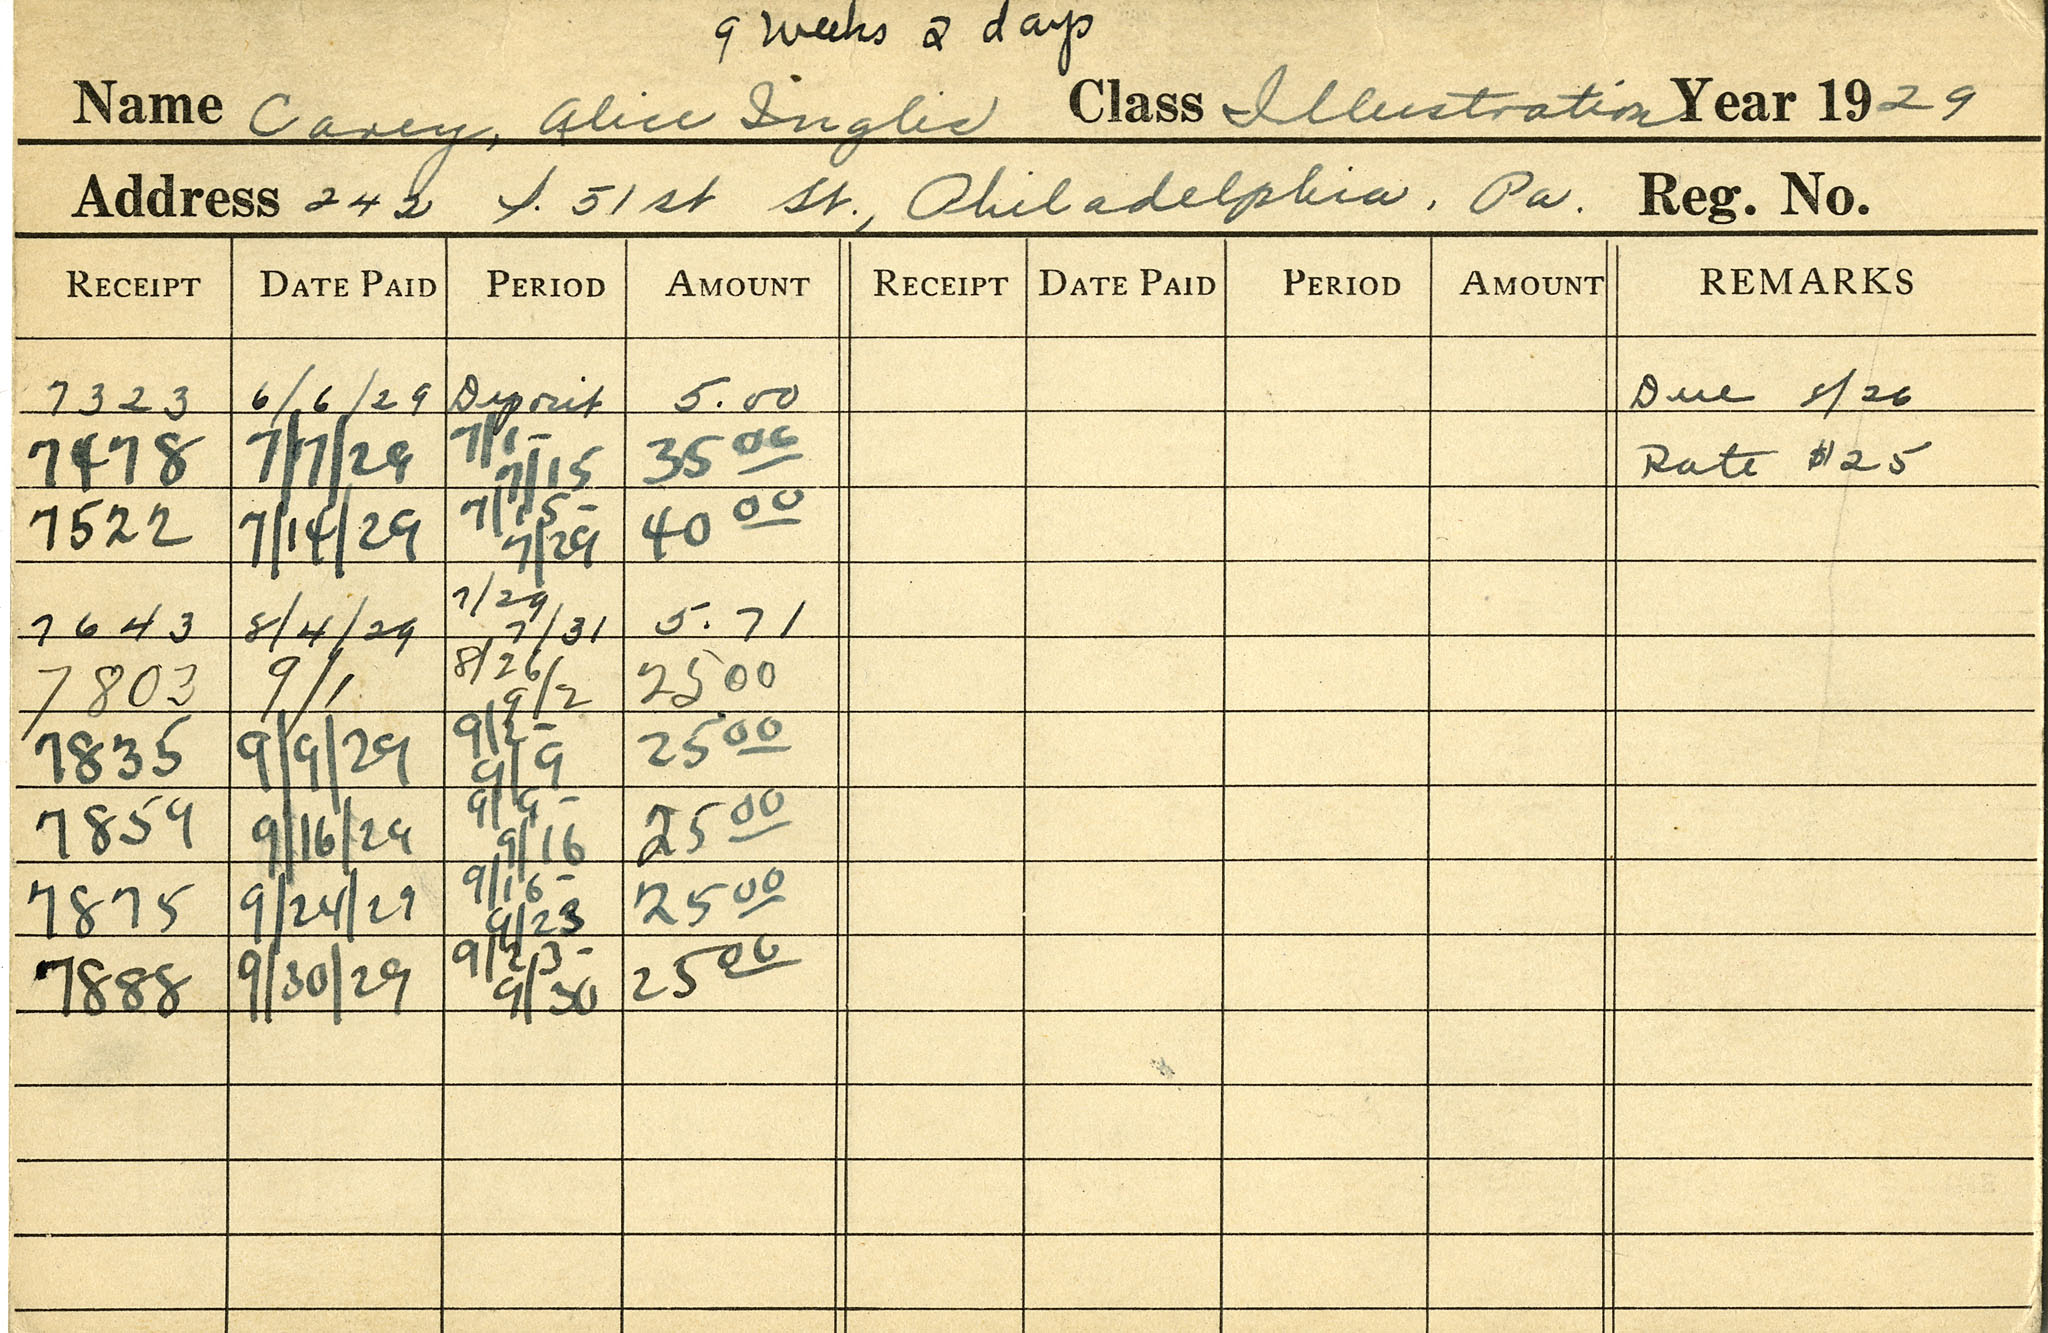 9 weeks 2 days
Name Carey, Alice Inglis Class Illustration Year 1929
Address 242 S. 51st St., Philadelphia, Pa. Reg. No.
RECEIPT DATE PAID PERIOD AMOUNT RECEIPT DATE PAID PERIOD AMOUNT REMARKS
7323 6/6/29 Deposit 5.00 Due 8/26
7478 7/7/29 7/1- 7/15 35 00 Rate $25
7522 7/14/29 7/15- 7/29 40 00
7643 8/4/29 7/29 7/31 5.71
7803 9/1 8/26 9/2 25 00
7835 9/9/29 9/2- 9/9 25 00
7859 9/16/29 9/9- 9/16 25 00
7875 9/24/29 9/16- 9/23 25 00
7888 9/30/29 9/23- 9/30 25 00